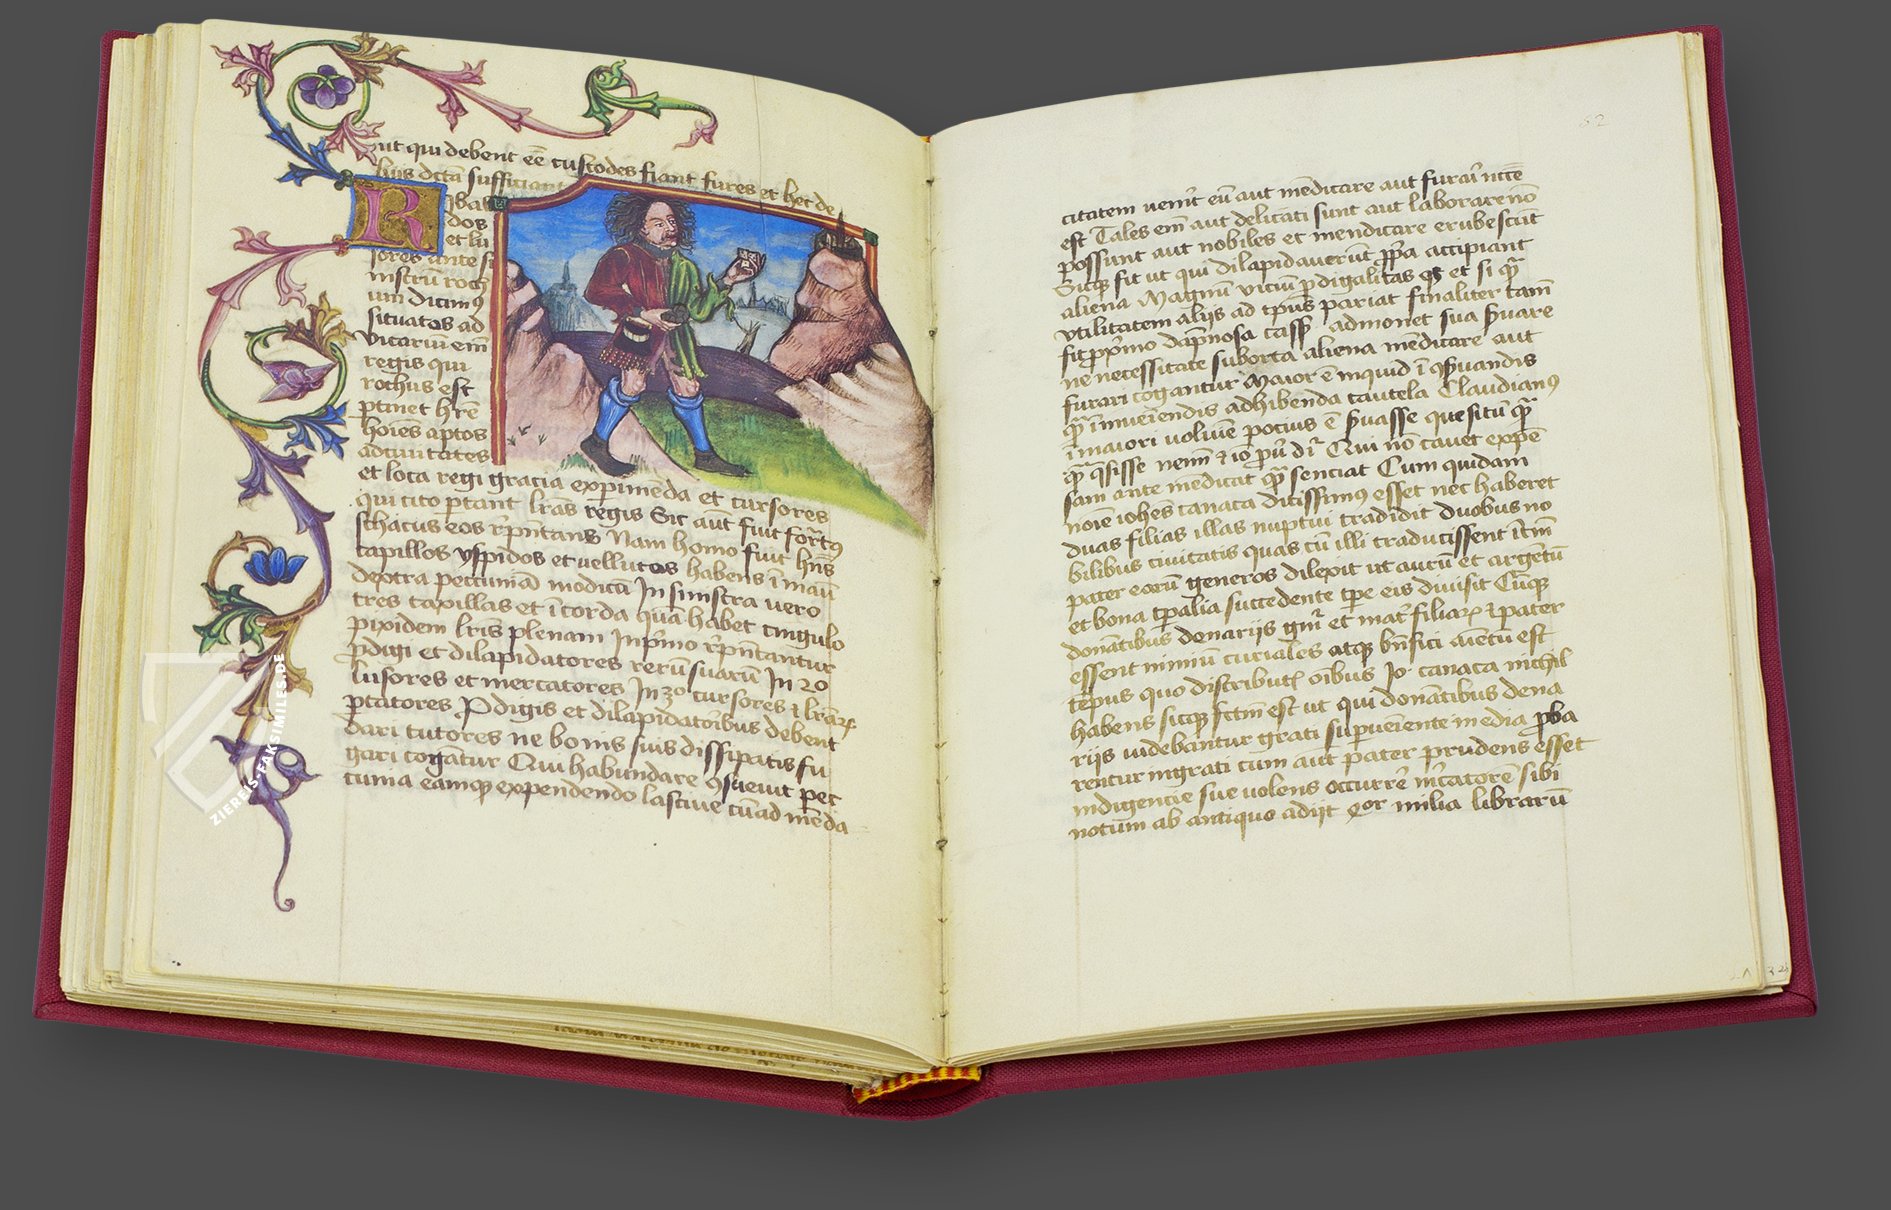 ut qui debent eē custodes fiant fures et hec de
liis dcta sufficiant
R
Ibal
dos
et lu
sores ante
instrū roch
um dicimꝰ
situatos ad
vicariū em̄
regis qui
rochus est
ptinet hrē
hoīes aptos
ad ciuitates
et loca regi gracia exprimēda et cursores
qui cito portant lrās regis Sic aūt fuit fort
schacus eos rp̄ntans Nam homo fuit hn̄s
capillos yspidos et vellutos habens ī manū
dextra peccuniā modicā In sinistra vero
tres taxillas et ī corda quā habet cingulo
pixidem lrīs plenam In prīmo rp̄ntantur
ꝓdigi et dilapidatores rerū suarū In 20
lusores et mercatores In 30 cursores ⁊ lrāꝝ
portatores Prodigis et dilapidatoribus debent
dari tutores ne bonis suis dissipatis fu
gari cogātur Qui habundare ꝯsueuit pec
cunia eamqꝫ expendendo lasciue cū ad mēda
52
citatem venīt eū aut mēdicare aut furari nccē
est Tales em̄ aut delicati sunt aut laborare nō
possunt aut nobiles et mendicare erubescūt
Sicqꝫ fit ut qui dilapidauerūt ꝓpa accipiant
aliena Magnū viciū ꝓdigalitas et si
vtilitatem aliis ad tpus pariat finaliter tam̄
fit proximo dāpnosa cass admonet sua suare
ne necessitate suborta aliena mēdicare aut
furari cogantur Maior ē inquid ī ꝯseruandis
qꝫ ī inueiendis adhibenda cautela Claudianꝰ
ī maiori uolum̄e pocius ē suasse quesitū
qsisse nem Qui nō cauet expē
sam ante mēdicat senciat Cum quidam
noīe iohēs canaca ditissimꝰ esset nec haberet
duas filias illas nuptui tradidit duobus no
bilibus ciuitatis quas cū illi traduxissent
pater earū generos dilexit ut aurū et argētū
et bona tꝑalia succedente tꝑe eis diuisit Cūqꝫ
donātibus denariis et filiaꝝ ⁊ pater
essent nimiū curiales atqꝫ bn̄fici
tēpus quo distributis oībus Io canaca nichil
habens sicqꝫ fctm̄ est ut qui donātibus dena
riis uidebantur grati supueīente inedia ꝓba
rentur ingrati cum aūt pater prudens esset
indigencie sue uolens occurrē m̄catorē sibi
notum ab antiquo adiit milia librarū
ZIEREIS-FAKSIMILES.DE